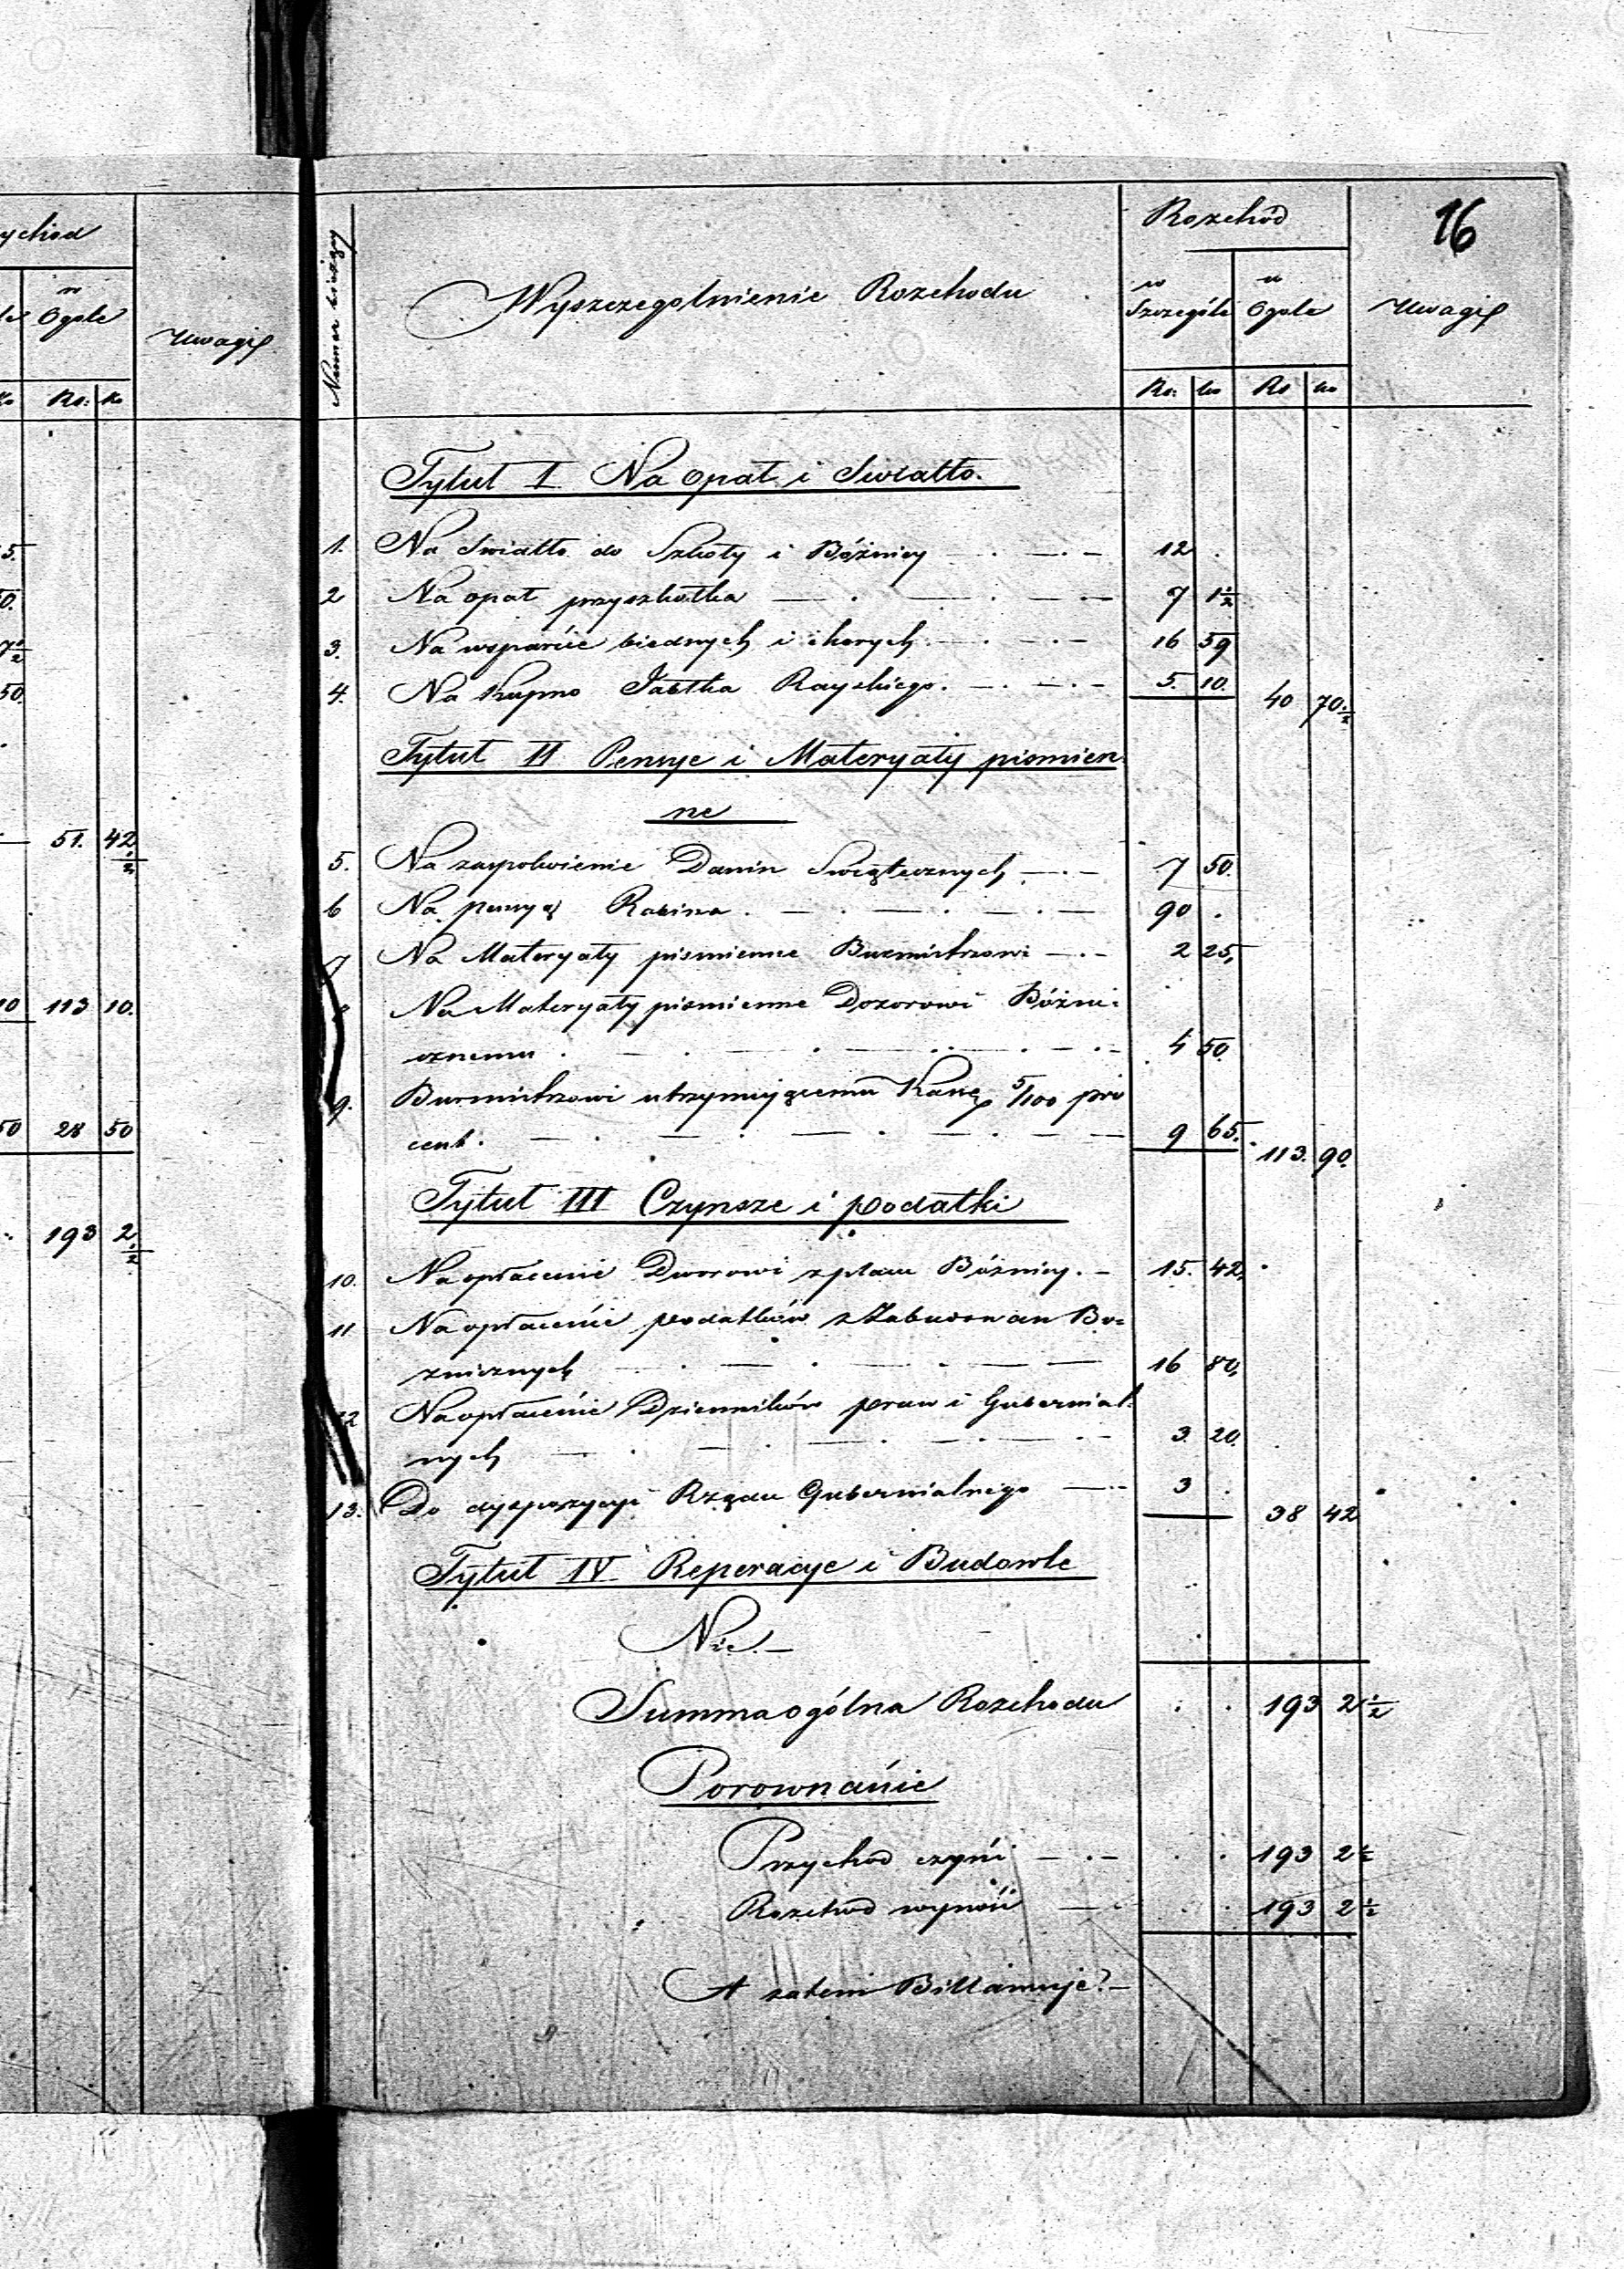 ychod
w
Ogóle
Uwagi
Rs: k
51. 42 1/2
10 113 10.
50 28 50
193 2 1/2
16
Numer bieżący
Wyszczegolnienie Rozchodu
Rozchód
w Szczególe
w Ogóle
Uwagi
Rs: ko Rs ko
Tytuł I Na opał i Swiatło.
1. Na Swiatło do Szkoły i Bóżnicy 12 .
2 Na opał przyszkołka 7 1 1/2
3. Na wsparcie biednych i chorych 16 59
4. Na kupno Jabłka Rayskiego. 5. 10. 40 70 1/2
Tytuł II Pensye i Materyały pismien
ne
5. Na zaspokoienie Danin Swiątecznych 7 50.
6 Na pensyą Rabina. 90 .
7 Na Materyały pismienne Burmistrzowi 2 25,
Na Materyały pismienne Dozorowi Bóżni-
cznemu. 4 50.
9. Burmistrzowi utrzymującemu Kassę 5/100 pro
cent. 9 65. 113. 90.
Tytuł III Czynsze i podatki
10. Na opłacenie Dworowi z placu Bóżnicy. 15. 42,
11 Na opłacenie podatków z Zabudowan Bo-
żnicznych 16 80,
12 Na opłacenie Dzienników praw i Gubernial-
nych 3. 20.
13. Do dyspozycyi Rządu Gubernialnego 3 . 38 42
Tytuł IV Reperacye i Budowle
Nic.
Summa ogólna Rozchodu . . 193 2 1/2
Porownanie
Przychód czyni . . 193 2 1/2
Rozchod wynosi . . 193 2 1/2
A zatem Billansuje